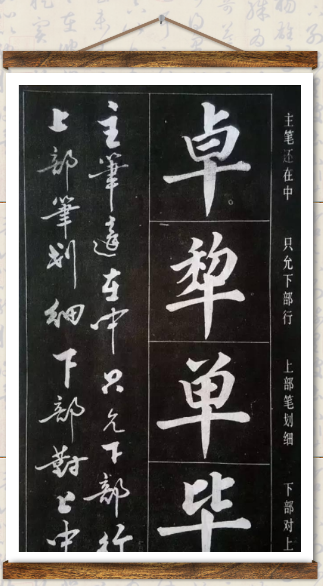 主笔还在中 只允下部行 上部笔划细 下部对上
卓犁单毕
主筆還在中只允下部行
上部筆划细下部對上中